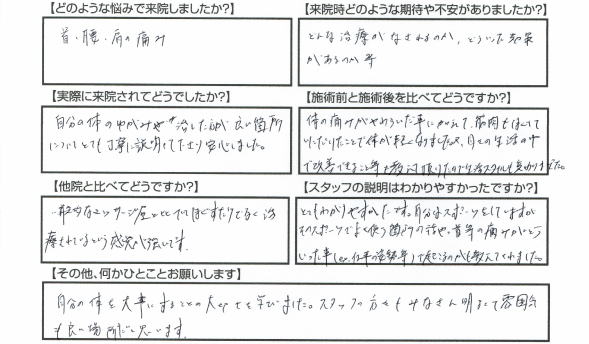 【どのような悩みで来院しましたか?】
首・腰・肩の痛み
【来院時どのような期待や不安がありましたか?】
どんな治療がなされるのか、どういった効果
があるのか 等
【実際に来院されてどうでしたか?】
自分の体のゆがみや治した方が良い箇所
についてとても丁寧に説明して下さり安心しました。
【施術前と施術後を比べてどうですか?】
体の痛みがやわらいだ事にくわえて、筋肉もほぐして
いただいたことで体が軽くなりましたし、日々の生活の中
で改善できること等も教えて頂いたので生活スタイルも変わりました。
【他院と比べてどうですか?】
一般的なマッサージ屋とちがいほぐすだけでなく治
療されているという感覚が強いです。
【スタッフの説明はわかりやすかったですか?】
とてもわかりやすかったです。自分はスポーツをしていますが
そのスポーツでよく使う筋肉の話や、首等の痛みがどう
いった事(ex. 仕事の姿勢等)で起こるのかも教えてくれました。
【その他、何かひとことお願いします】
自分の体を大事にすることの大切さを学びました。スタッフの方々もみなさん明るくて雰囲気
も良い場所だと思います。